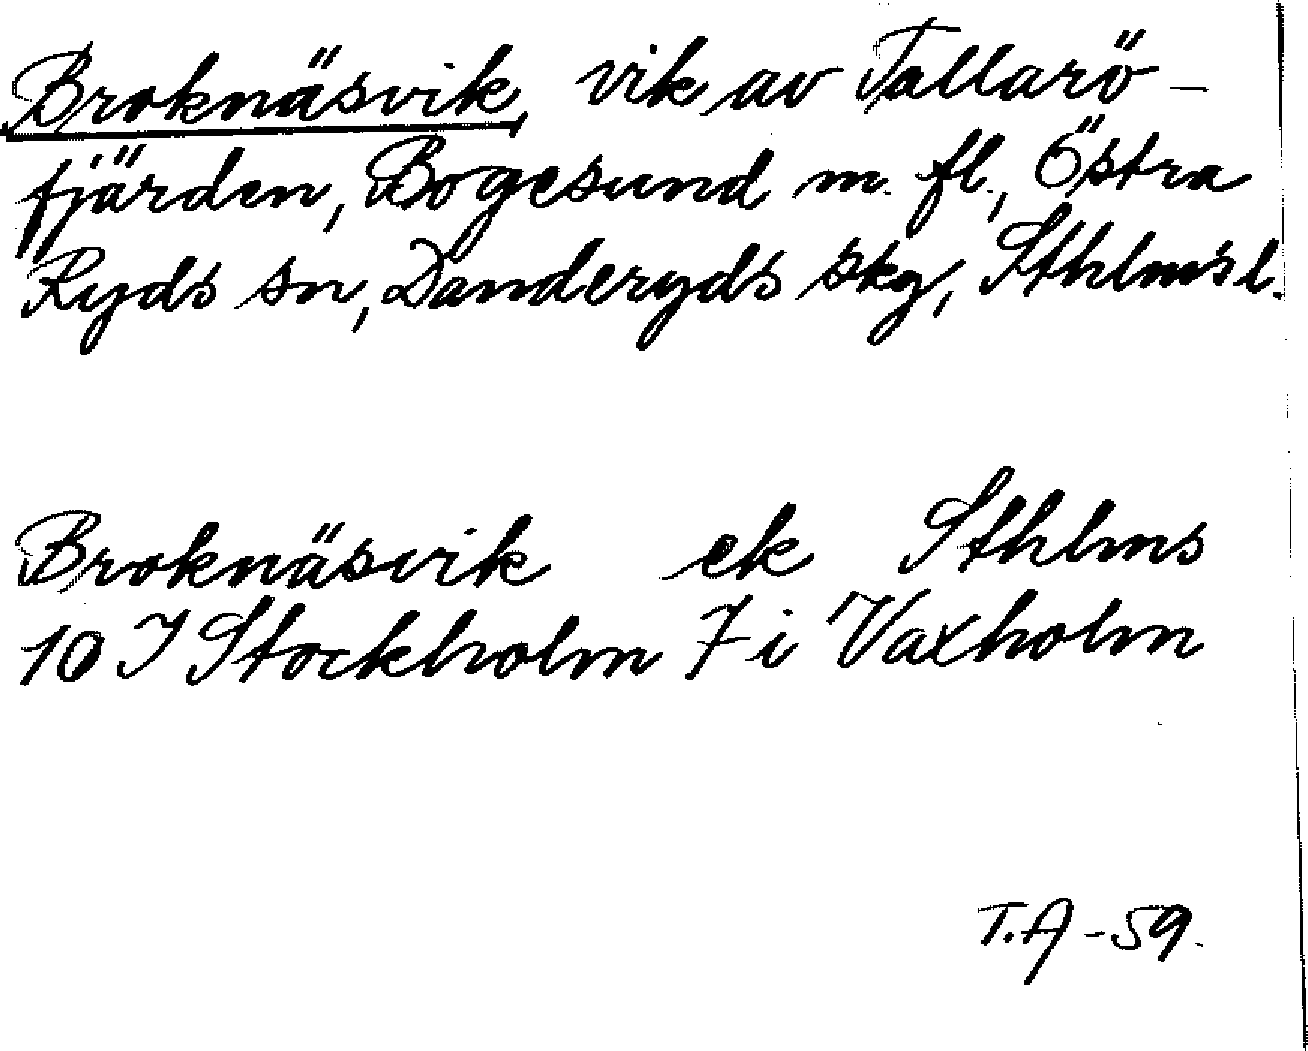 Broknäsvik, vik av Tallarö-
fjärden, Bogesund m. fl., Östra
Ryds sn, Danderyds skg, Sthlms l.
Broknäsvik ek Sthlms
10 I Stockholm 7 i Vaxholm
T.A -59.